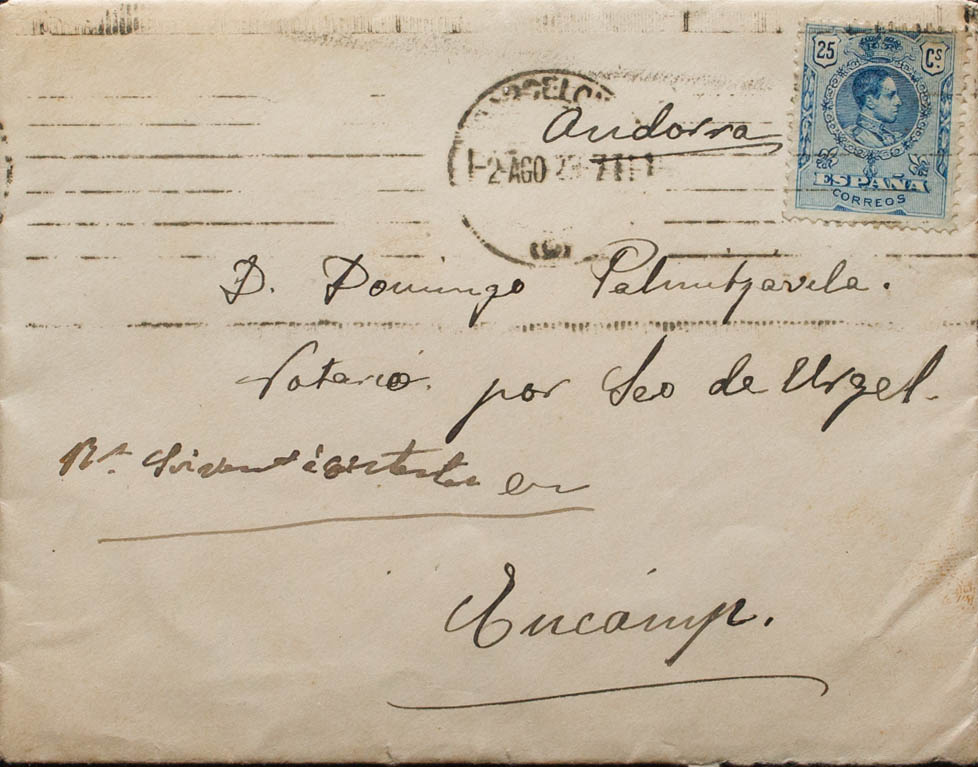 25 Cs
ESPAÑA
CORREOS
Andorra
2-AGO
D. Domingo Palmitjavila.
Notario. por Seo de Urgel.
en
Encámp.